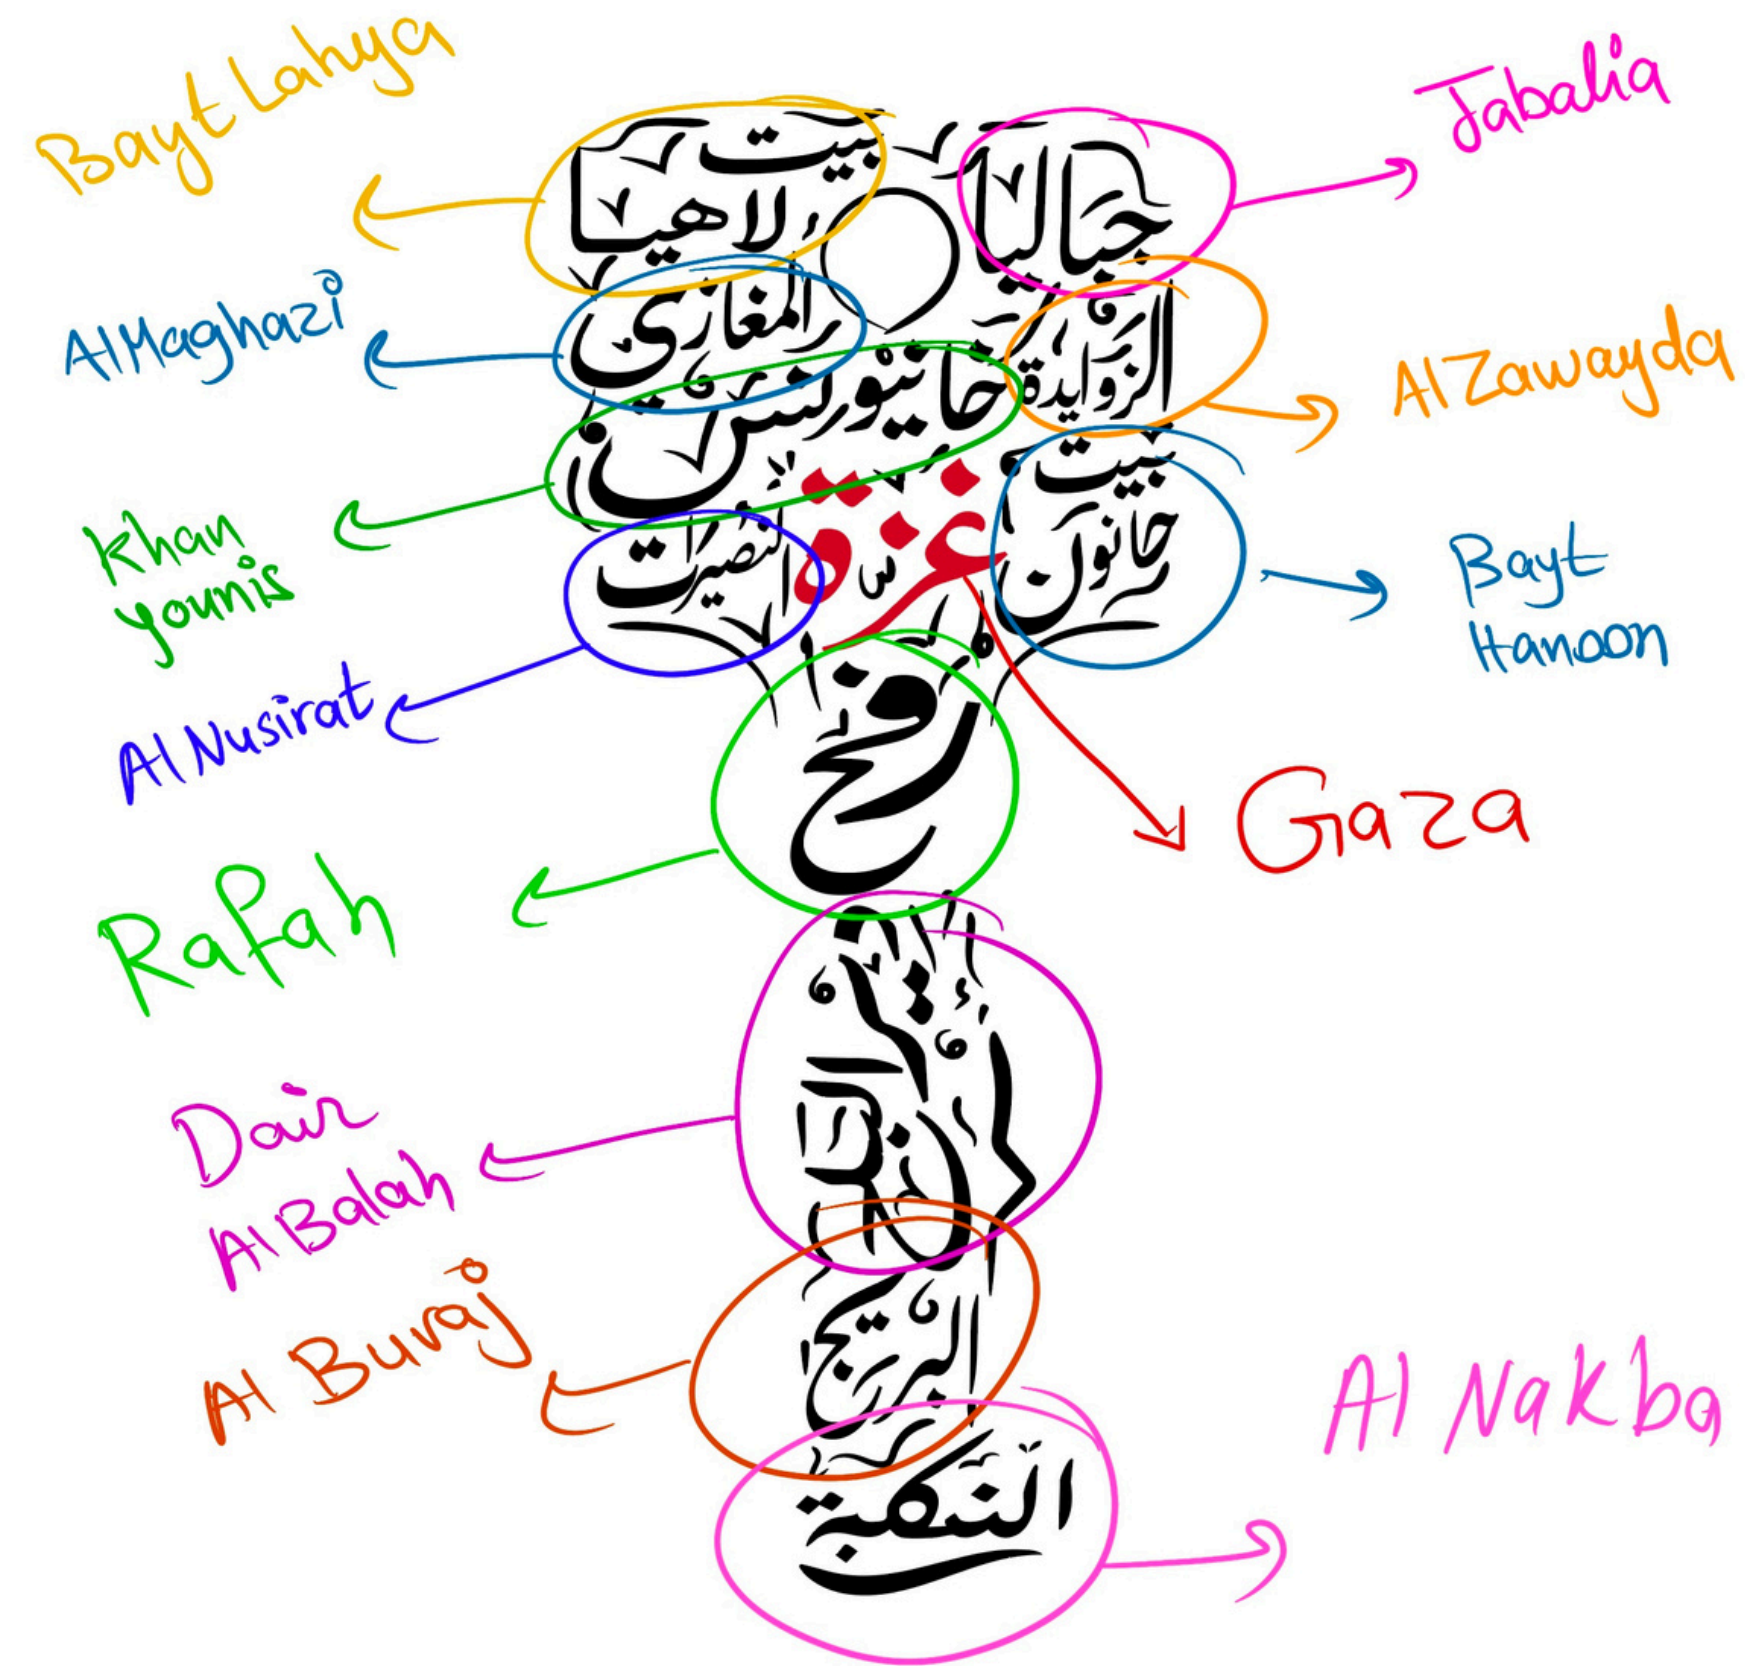 Bayt Lahya
Jabalia
بيت
لاهيا
جباليا
AlMaghazi
المغازي
الزوايدة
Al Zawayda
خانيونس
Khan
younis
بيت
حانون
غزة
النصيرات
Bayt
Hanoon
Al Nusirat
رفح
Gaza
Rafah
Dair
Al Balah
البريج
Al Buraj
Al Nakba
النكبة